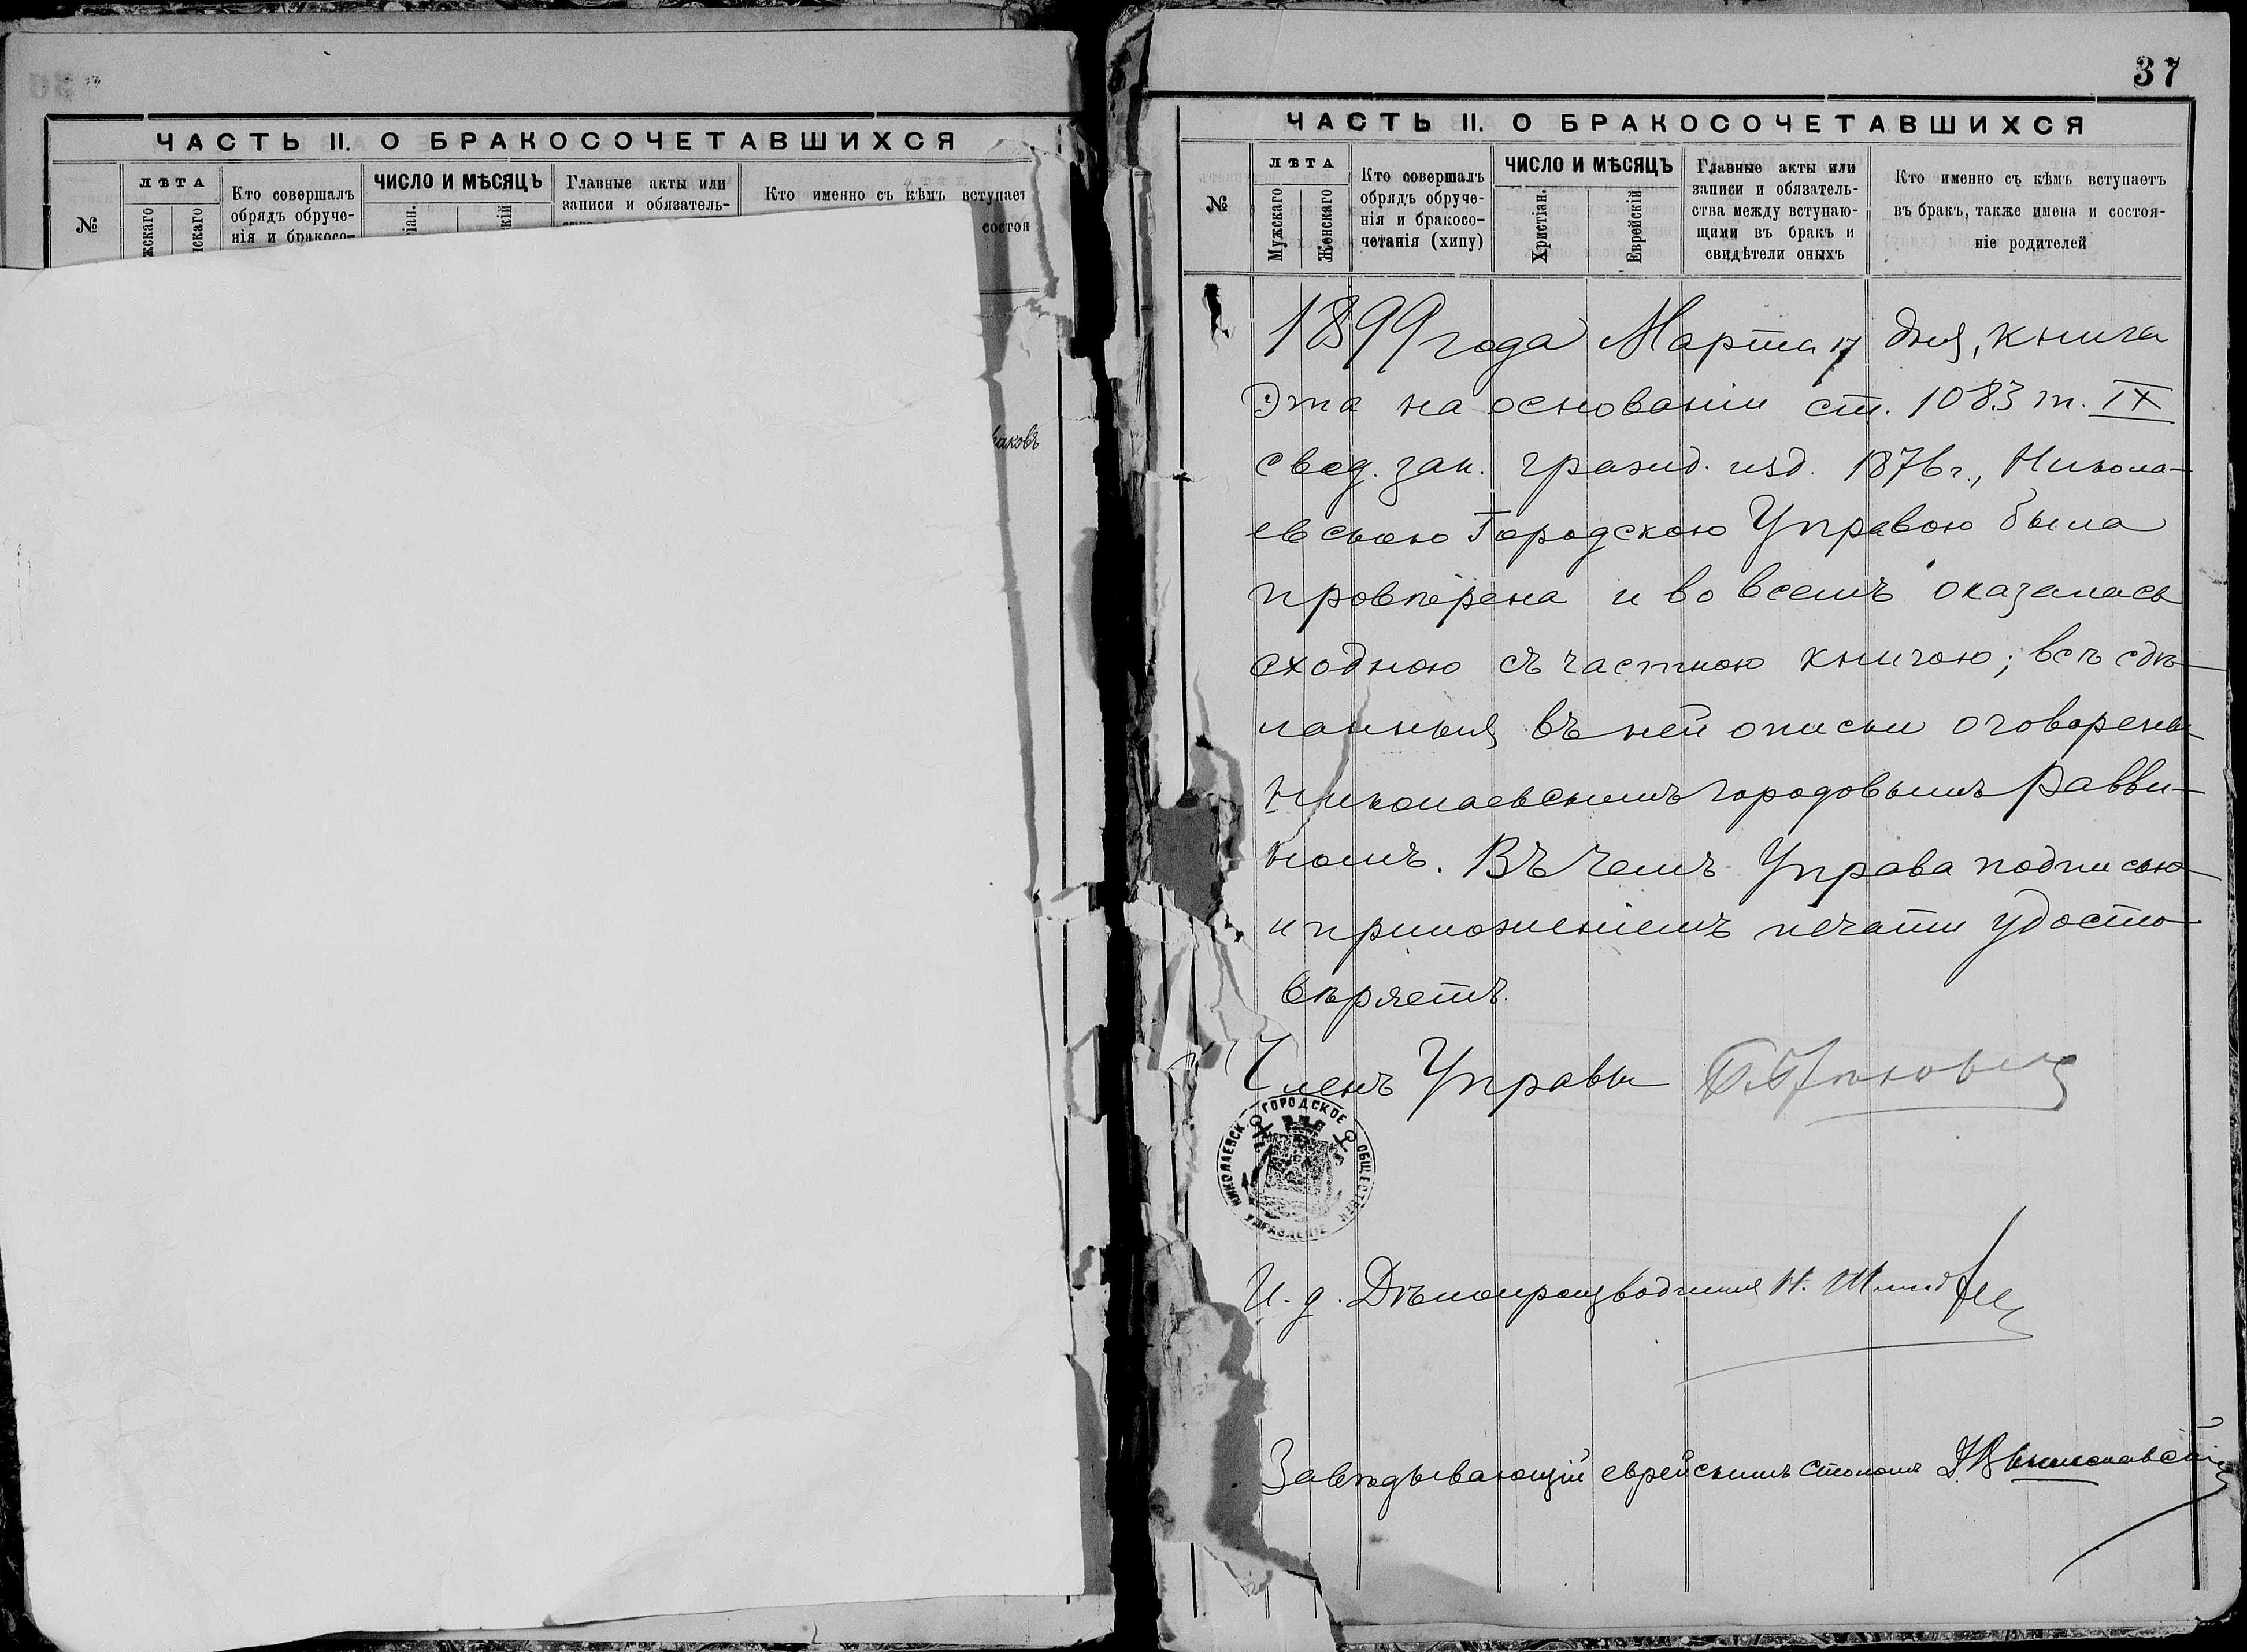 ЧАСТЬ II. О БРАКОСОЧЕТАВШИХСЯ
№
ЛѢТА
Кто совершалъ
обрядъ обруче-
нія и бракосо-
ЧИСЛО И МѢСЯЦЪ
Главные акты или
записи и обязатель-
Кто именно съ кѣмъ вступает
состоя
аковъ
37
ЧАСТЬ II. О БРАКОСОЧЕТАВШИХСЯ
№
ЛѢТА
Мужскаго
Женскаго
Кто совершалъ
обрядъ обруче-
нія и бракосо-
четанія (хипу)
ЧИСЛО И МѢСЯЦЪ
Христіан.
Еврейскій
Главные акты или
записи и обязатель-
ства между вступаю-
щими въ бракъ и
свидѣтели оныхъ
Кто именно съ кѣмъ вступаетъ
въ бракъ, также имена и состоя-
ніе родителей
1899 года Марта 17 дня, книга
эта на основаніи ст. 1083 т. IX
свод. зак. гражд. изд. 1876 г., Никола-
евскою Городскою Управою была
провѣрена и во всемъ оказалась
сходною съ частною книгою; всѣ сдѣ-
ланныя въ ней описки оговорены
Николаевскимъ городовымъ Равви-
номъ. Въ чемъ Управа подписью
и приложеніемъ печати удосто-
вѣряетъ.
Членъ Управы
НИКОЛАЕВСК. ГОРОДСКОЕ ОБЩЕСТВЕН. УПРАВЛЕНІЕ
И. д. Дѣлопроизводителя Н.
Завѣдывающій еврейскимъ столомъ